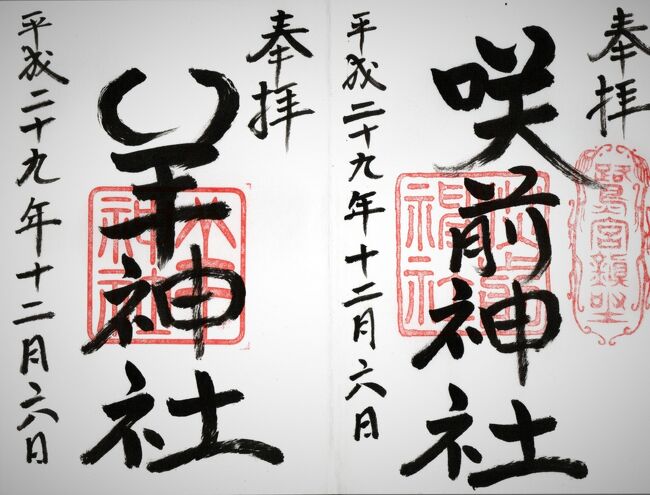 奉拝
鷺宮鎮坐
咲前神社
平成二十九年十二月六日
奉拝
羊神社
平成二十九年十二月六日